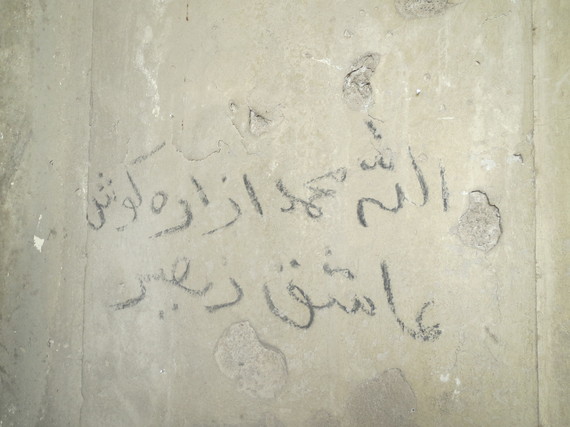 الله محمد ازاره کوش
عاشق نصیر